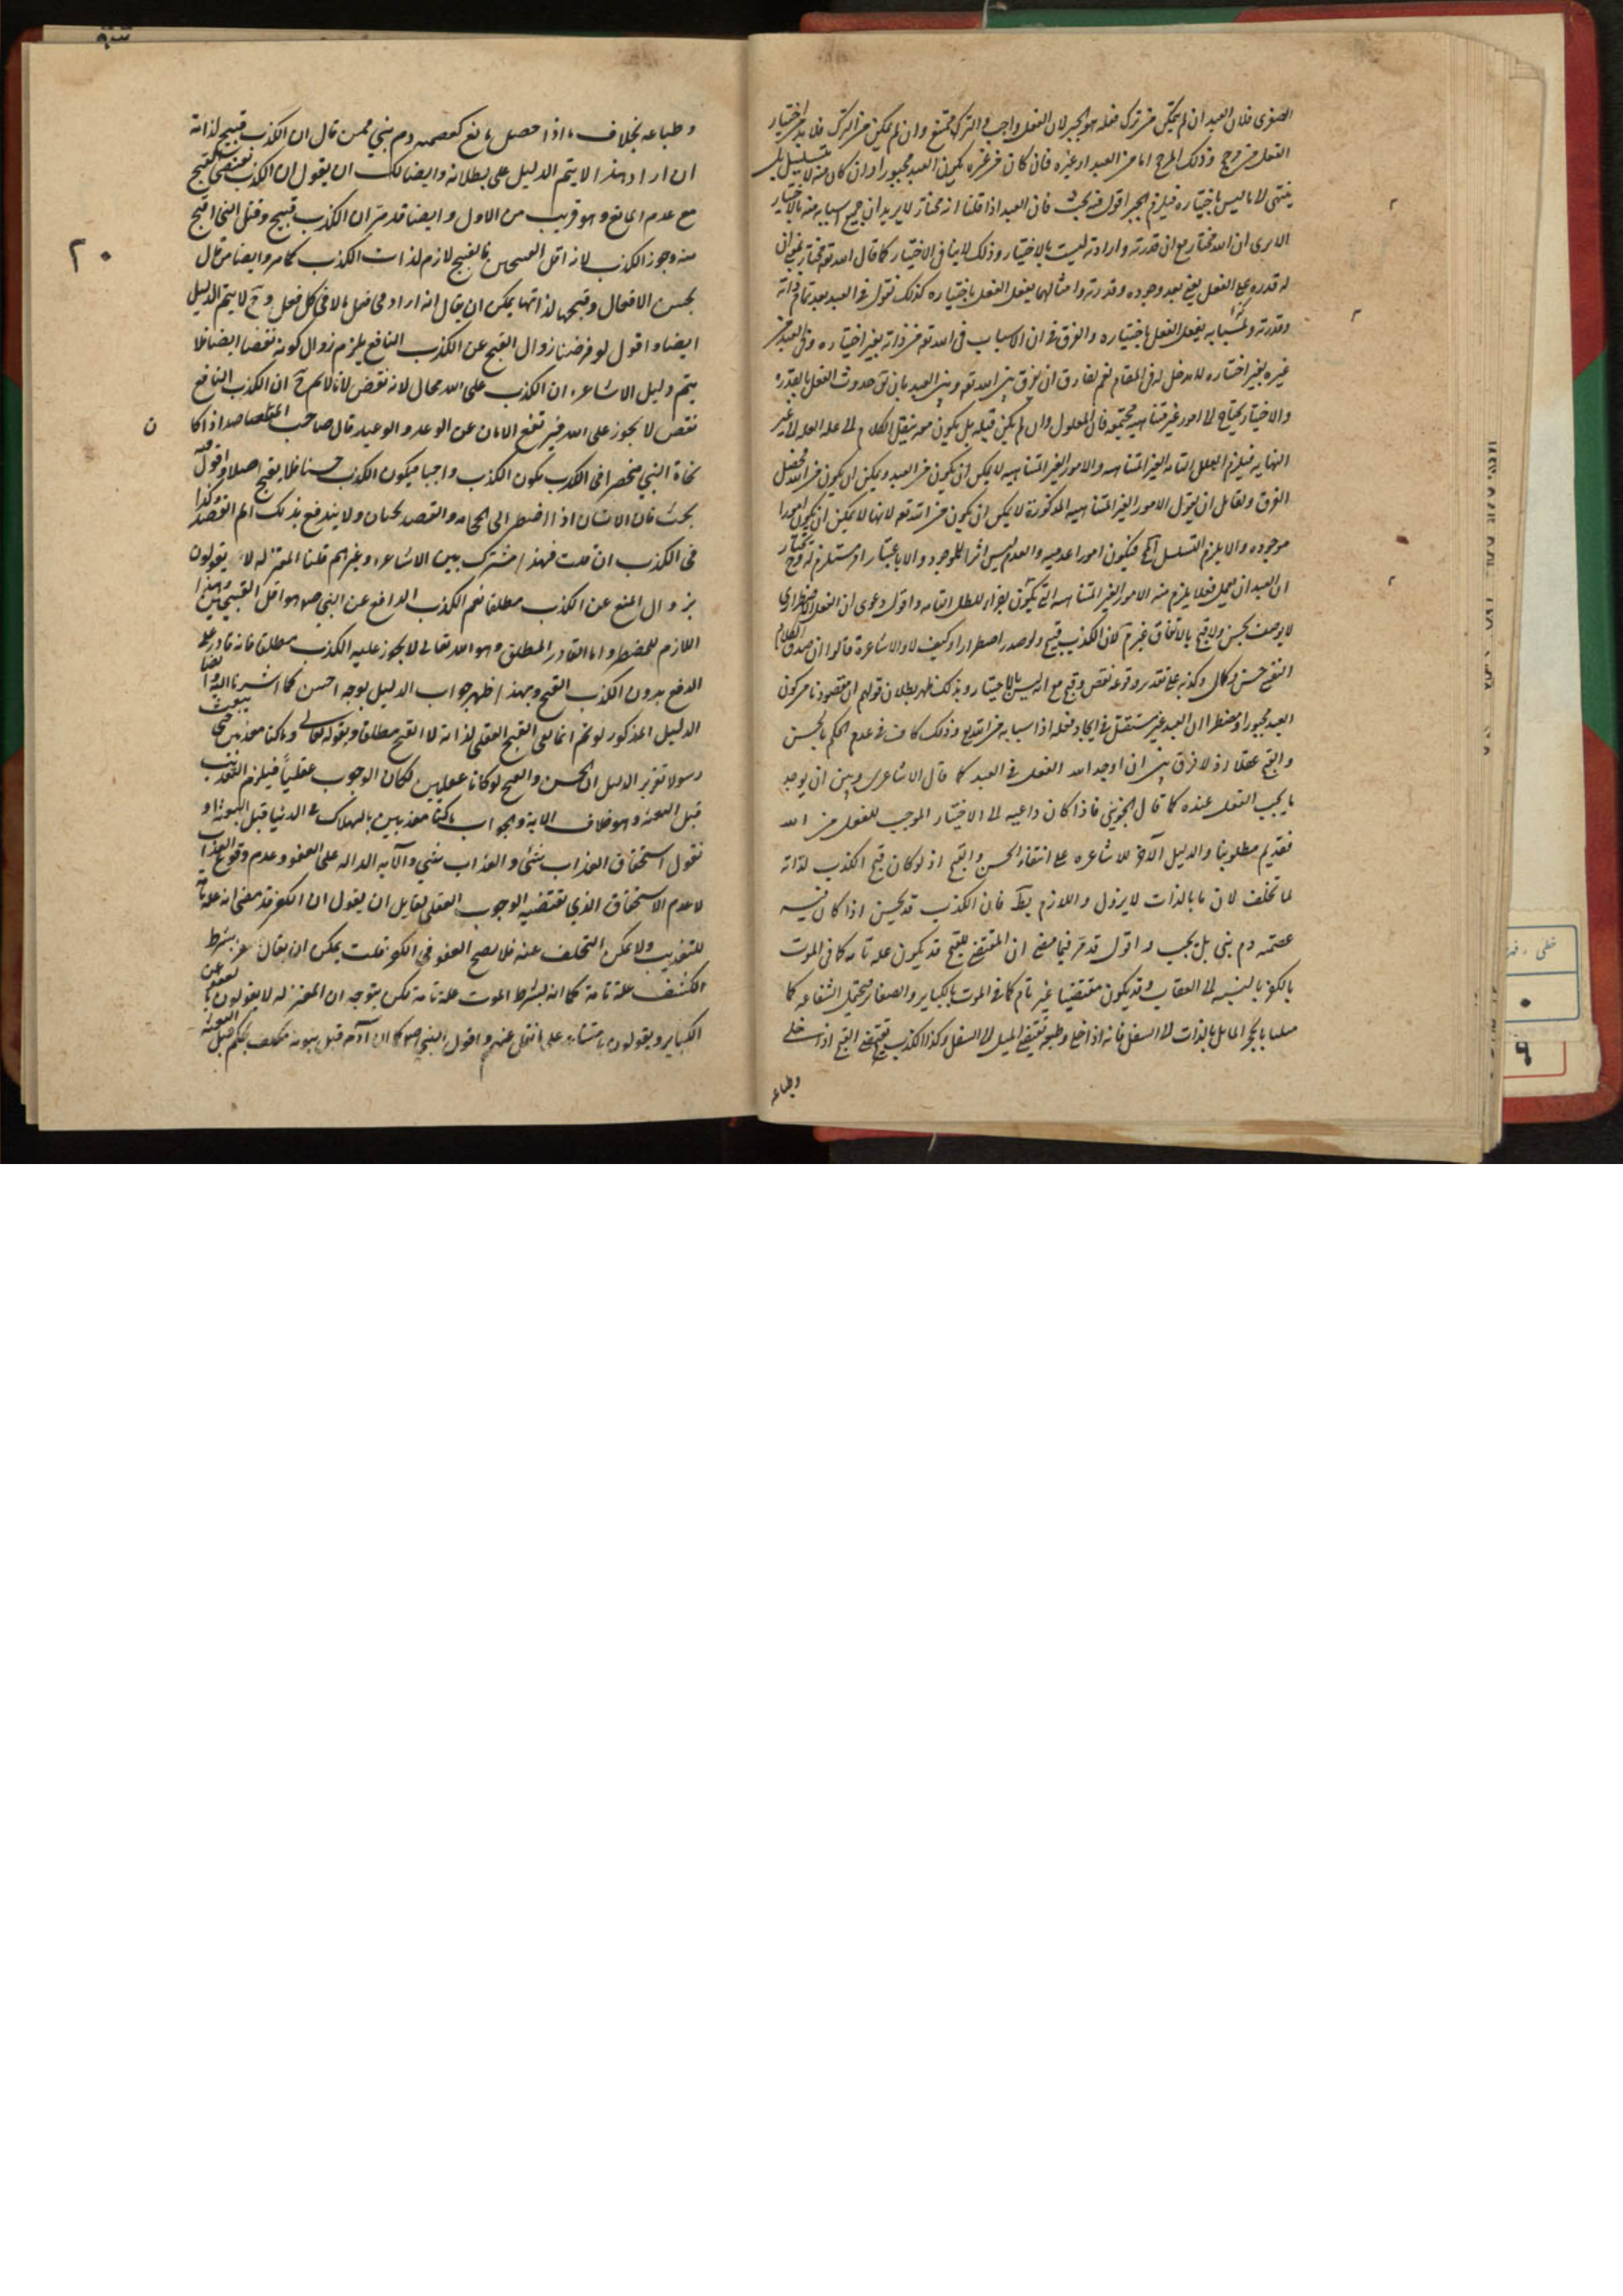 الصغرى فلان العبد ان لم يتمكن من ترك فعله هو الجبر لان الفعل واجب والترك ممتنع وان لم يكن من الترك فلا بد من اختيار
الفعل من مرجح وذلك المرجح اما من العبد او غيره فان كان من غيره يكون العبد مجبورا وان كان منه لا يتسلسل بل
ينتهى لا ما ليس باختياره فيلزم الجبر اقول فيه بحث فان العبد اذا قلنا انه مختار لا يريد ان جميع اسبابه منه بالاختيار
الا يرى ان الله مختار مع ان قدرته وارادته ليست بالاختيار وذلك لا ينافى الاختيار كما قال الله تعه مختار بمعنى ان
له قدره على الفعل يعنى بعد وجوده وقدرته وامثالهما يفعل الفعل باختياره كذلك نقول فى العبد بعد تمام ذاته
وقدرته واسبابه يفعل الفعل باختياره والفرق فى ان الاسباب فى الله تعه من ذاته بغير اختياره وفى العبد من
غيره بغير اختياره لا مدخل له فى المقام نعم لفارق ان يفرق بين الله تعه وبين العبد بان حدوث الفعل بالقدرة
والاختيار يحتاج الى امور غير متناهيه مجتمعه فان المعلول وان لم يكن قبله بل يكون معه ينقل الكلام الى علة العله الى غير
النهايه فيلزم العلل التامه الغير المتناهيه والامور الغير المتناهيه لا يمكن ان يكون من العبد ويمكن ان يكون من الله فحصل
الفرق ولقائل ان يقول الامور الغير المتناهيه المذكورة لا يمكن ان يكون من الله تعه لانها لا يمكن ان يكون امورا
موجوده والا يلزم التسلسل فيكون امورا عدميه والعدم ليس اثرا للموجود والا باعتبار امر مستلزم له وح نختار
ان العبد ان يعمل فعلا يلزم منه الامور الغير المتناهيه التى يكون اجزاء للعلل التامه واقول دعوى ان الفعل الاضطراري
لا يوصف بحسن ولا قبح بالاتفاق غير م لان الكذب قبيح ولو صدر اضطرارا وكيف لا والاشاعرة قالوا ان صدق الكلام
النفسى حسن وكمال وكذبه على تقدير وقوعه نقص وقبح مع انه ليس بالاختيار وبذلك ظهر بطلان قولهم ان مقصودنا من كون
العبد مجبورا ومضطرا ان العبد غير مستقل فى ايجاد فعله اذ اسبابه من الله تع وذلك كاف فى عدم الحكم بالحسن
والقبح عقلا اذ لا فرق بين ان اوجد الله الفعل فى العبد كما قال الاشاعرى وبين ان يوجد
ما يجب الفعل عنده كما قال الجويني فاذا كان داعيه الى الاختيار الموجب للفعل من الله
فقد تم مطلوبنا والدليل الآخر للاشاعره على انتفاء الحسن والقبح اذ لو كان قبح الكذب لذاته
لما تخلف لان ما بالذات لا يزول واللازم بط فان الكذب قد يحسن اذا كان فيه
عصمة دم نبى بل يجب واقول قد مر فيما مضى ان المقتضى للقبح قد يكون علة تامه كما فى الموت
بالكفر بالنسبه الى العقاب وقد يكون مقتضيا غير تام كما فى الموت بالكباير والصغار محتمل الشفاعه كما
مثلنا بالحجر المايل بالذات الى السفل فانه اذا خلى وطبعه يقتضى الميل الى السفل وكذا الكذب يقتضى القبح اذا خلى
وطباعه
٢٠
وطباعه بخلاف ما اذا حصل مانع كعصمه دم نبي فمن قال ان الكذب قبيح لذاته
ان اراد هذا لا يتم الدليل على بطلانه وايضا لك ان يقول ان الكذب يقتضى القبح
مع عدم المانع وهو قريب من الاول وايضا قد مر ان الكذب قبيح وقتل النبى اقبح
منه وجوز الكذب لانه اقل القبيحين فالقبح لازم لذات الكذب كما مر وايضا من قال
بحسن الافعال وقبحها لذاتها يمكن ان يقال انه اراد فى فعل ما لا فى كل فعل وح لا يتم الدليل
ايضا واقول لو فرضنا زوال القبح عن الكذب النافع يلزم زوال كونه نقصا ايضا فلا
يتم دليل الاشاعره ان الكذب على الله محال لانه نقص لانا لا نسلم ح ان الكذب النافع
نقص لا يجوز على الله فيرتفع الامان عن الوعد والوعيد قال صاحب المقاصد اذا كا
ن
نجاة النبي منحصرا فى الكذب يكون الكذب واجبا فيكون الكذب حسنا فلا يقبح اصلا واقول فيه
بحث فان الانسان اذا اضطر الى الحجامه والفصد يحسنان ولا يندفع بذلك الم الفصد وكذا
فى الكذب ان قلت فهذا مشترك بين الاشاعره وغيرهم قلنا المعتزله لا يقولون
بزوال المنع عن الكذب مطلقا نعم الكذب الدافع عن النبي صم هو اقل القبيحين وهذا
اللازم للمضطر واما القادر المطلق وهو الله تعالى لا يجوز عليه الكذب مطلقا فانه قادر على
الدفع بدون الكذب القبيح وبهذا ظهر جواب الدليل بوجه احسن كما اشرنا اليه وايضا
الدليل المذكور لو تم انما نفى القبح العقلى لذاته لا القبح مطلقا وبقوله تعالى وما كنا معذبين حتى نبعث
رسولا تقرير الدليل ان الحسن والقبح لو كانا عقليين لكان الوجوب عقلياً فيلزم التعذيب
قبل البعثه وهو خلاف الايه والجواب ما كنا معذبين بالهلاك فى الدنيا قبل البعثه او
نقول استحقاق العذاب شئ والعذاب شئ والآيه الداله على العفو وعدم وقوع العذاب
لا عدم الاستحقاق الذي يقتضيه الوجوب العقلى لقايل ان يقول ان الكفر قد مضى انه علة تامه
للتعذيب ولا يمكن التخلف عنه فلا يصح العفو فى الكفر قلت يمكن ان يقال بشرط
الكشف علة تامة كما انه بشرط الموت علة تامة لكن يتوجه ان المعتزله لا يقولون بالعفو عن
الكباير ويقولون واقول النبي صم كما ان آدم قبل نبوته مكلف بحكم قبل البعثه